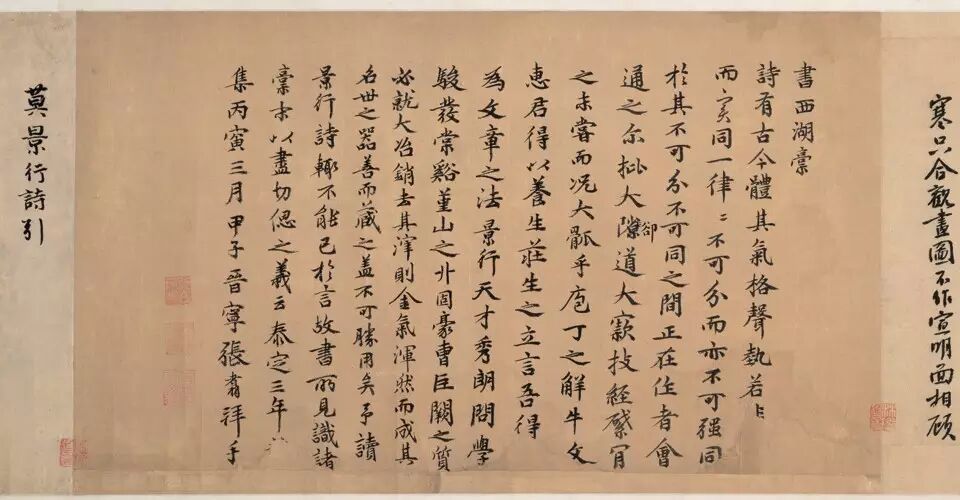 寒只合觀畫圖不作宣明面相顧
書西湖稾
詩有古今體其氣格聲執若
而宲同一律〻不可分而亦不可强同
於其不可分不可同之間正在作者會
通之尔批大隙卻道大窾技經綮肎
之未嘗而况大軱乎庖丁之解牛文
惠君得以養生莊生之立言吾得
為文章之法景行天才秀朗問學
駿發棠谿堇山之外閶豪曹巨闕之質
必就大冶銷去其滓則金氣渾然而成其
名世之器善而蔵之盖不可勝用矣予讀
景行詩輙不能已於言故書所見識諸
稾末以盡切偲之義云泰定三年
集丙寅三月甲子晉寧張翥拜手
莫景行詩引